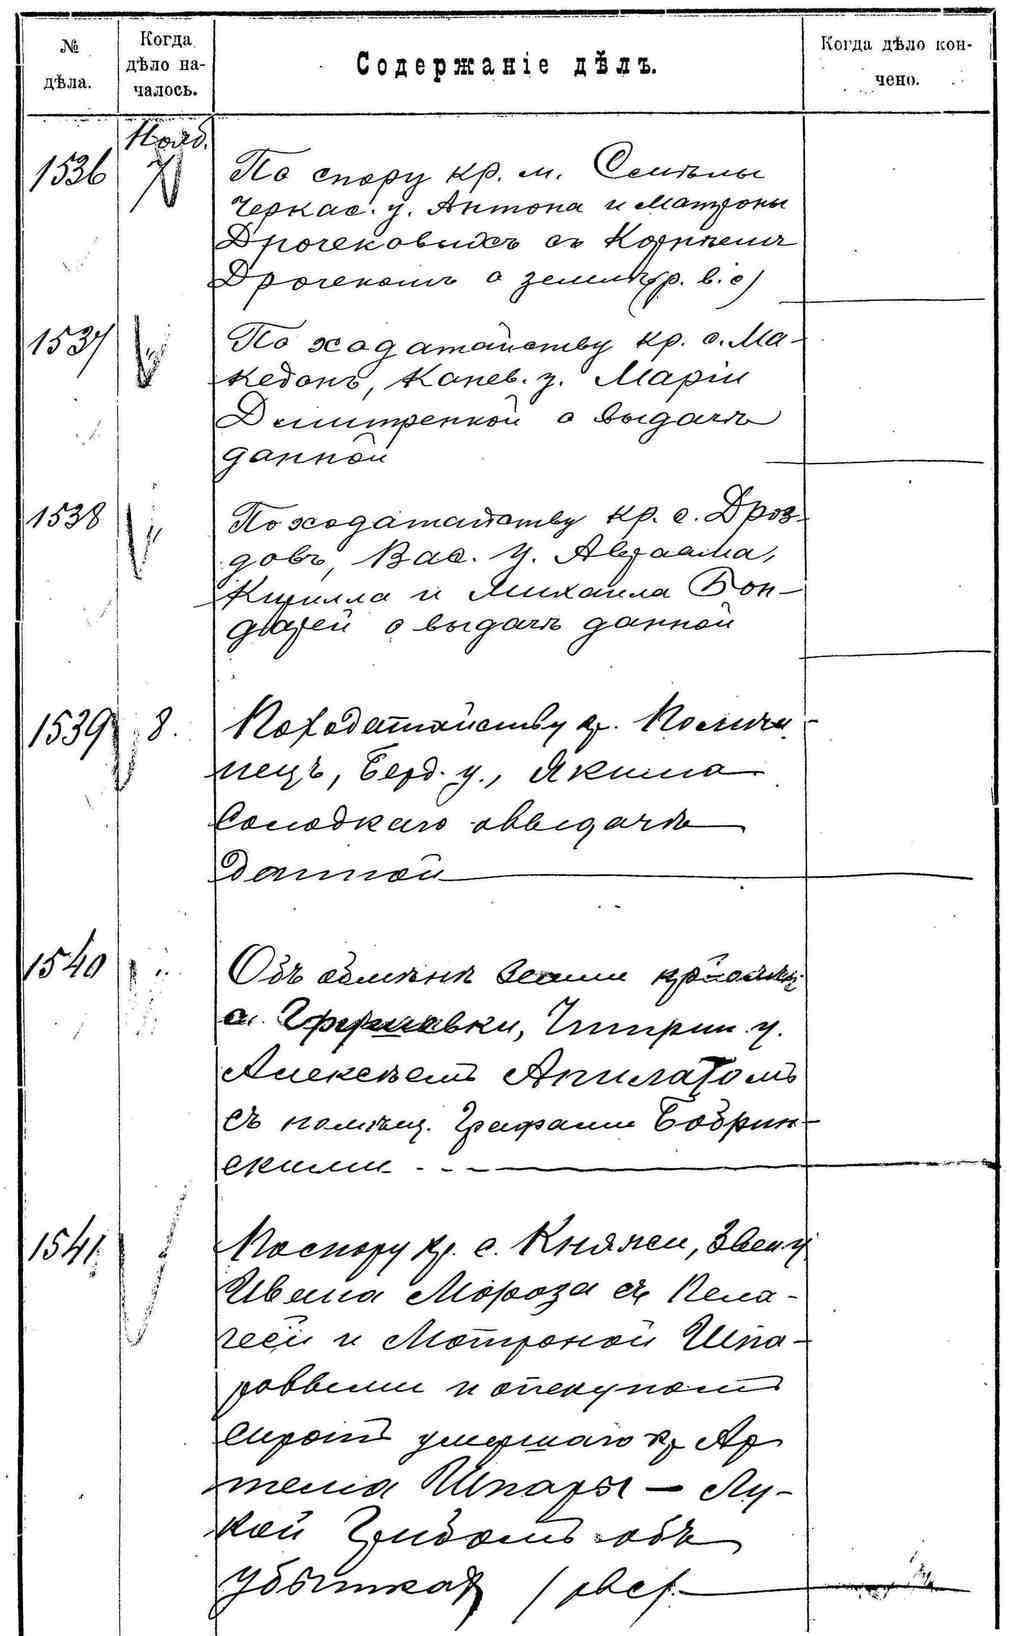 № дѣла.
Когда дѣло на-
чалось.
Содержаніе дѣлъ.
Когда дѣло кон-
чено.
Нояб.
1536 7 По спору кр. м. Смѣлы
Черкас. у. Антона и Матроны
Дрочековыхъ съ Корнѣемъ
Дрочекомъ о землѣ (р. в. с)
1537 По ходатайству кр. с. Ма-
кедонъ, Канев. у. Маріи
Дмитренкой о выдачѣ
данной
1538 По ходатайству кр. с. Дроз-
довъ, Вас. у. Авраама,
Кирилла и Михаила Бон-
дарей о выдачѣ данной
1539 8. По ходатайству кр.
Берд. у., Якима
Солодкаго о выдачѣ
данной
1540 Объ обмѣнѣ земли
с. Грушевки, Чигрин. у.
Алексѣемъ
съ помѣщ. Графами Бобрин-
скими
1541 По спору кр. с. Княжей, Звен. у
Ивана Мороза съ Пела-
геей и Мотроной Шпа-
ровыми и опекуномъ
сиротъ умершаго кр. Ар
тема Шпары — Лу-
кой Грибомъ объ
убыткахъ